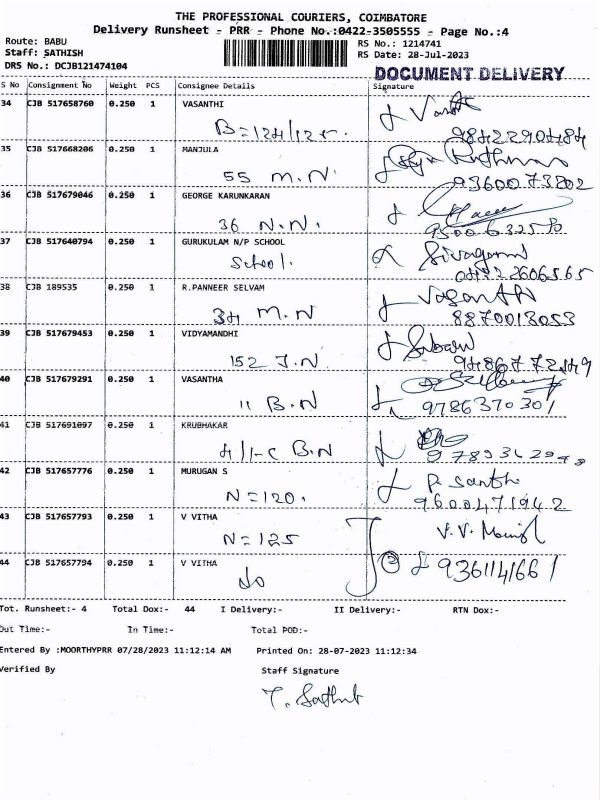 THE PROFESSIONAL COURIERS, COIMBATORE
Delivery Runsheet - PRR - Phone No.:0422-3505555 - Page No.:4
Route: BABU
RS No.: 1214741
Staff: SATHISH
RS Date: 28-Jul-2023
DRS No.: DCJB121474104
DOCUMENT DELIVERY
S No Consignment No Weight PCS Consignee Details Signature
34 CJB 517658760 0.250 1 VASANTHI
B=124/125.
9842290484
35 CJB 517668206 0.250 1 MANJULA
55 M.N.
9360073802
36 CJB 517679046 0.250 1 GEORGE KARUNKARAN
36 N.N.
37 CJB 517640794 0.250 1 GURUKULAM N/P SCHOOL
School.
Sivagami
04222606565
38 CJB 189535 0.250 1 R.PANNEER SELVAM
34 M.N
Vasanthi
8870013053
39 CJB 517679453 0.250 1 VIDYAMANDHI
152 J.N
40 CJB 517679291 0.250 1 VASANTHA
11 B.N
9786370301
41 CJB 517691097 0.250 1 KRUBHAKAR
4/1-C B.N
42 CJB 517657776 0.250 1 MURUGAN S
N=120.
P. Santhi
9600471942
43 CJB 517657793 0.250 1 V VITHA
N=125
V.V.
44 CJB 517657794 0.250 1 V VITHA
do
② 9361141661
Tot. Runsheet:- 4 Total Dox:- 44 I Delivery:- II Delivery:- RTN Dox:-
Out Time:- In Time:- Total POD:-
Entered By :MOORTHYPRR 07/28/2023 11:12:14 AM Printed On: 28-07-2023 11:12:34
Verified By Staff Signature